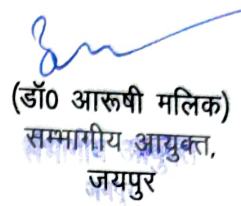 (डॉ0 आरूषी मलिक)
सम्भागीय आयुक्त,
जयपुर